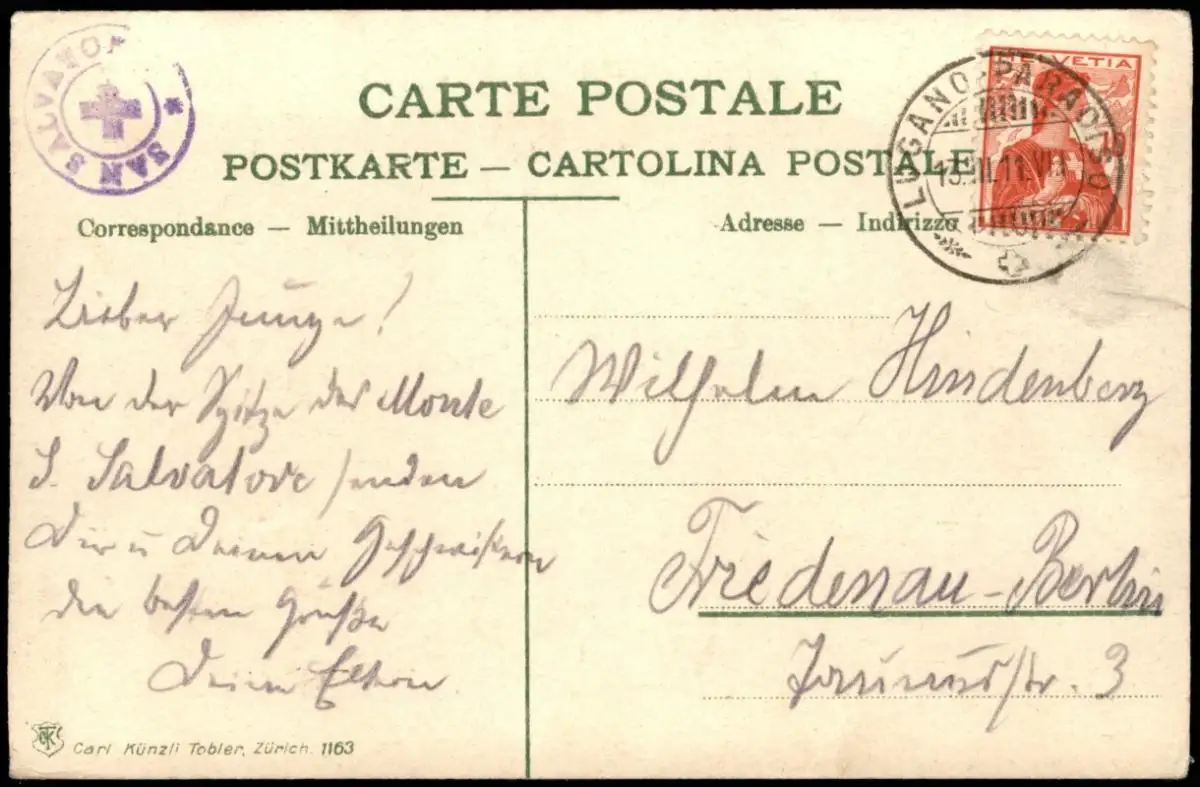 SAN SALVATORE *
CARTE POSTALE
POSTKARTE — CARTOLINA POSTALE
HELVETIA
LUGANO-PARADISO
11.VII
Correspondance — Mittheilungen
Adresse — Indirizzo
Lieber Junge!
Von der Spitze des Monte
S. Salvatore senden
Dir u Deinen Geschwistern
die besten Grüße
Deine Eltern.
Wilhelm Hindenberg
Friedenau-Berlin
Taunusstr. 3
Carl Künzli Tobler, Zürich. 1163